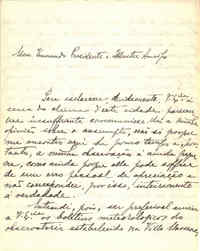 Meu Eminente Presidente e Illustre Amigo
Para esclarecer devidamente, V. Ex.ª
acerca do clima desta cidade, pareceu-
me insufficiente communicar-lhe a minha
opinião sobre o assumpto, não só porque
me encontro aqui ha pouco tempo e, por-
tanto, a minha observação é ainda peque-
na, como ainda porque ella pode soffrer
de um erro pessoal de apreciação e
não corresponder, por isso, inteiramente
á verdade.
Entendi, pois, ser preferivel enviar
a V. Ex.ª os boletins meteorologicos do
observatorio estabelecido na Villa